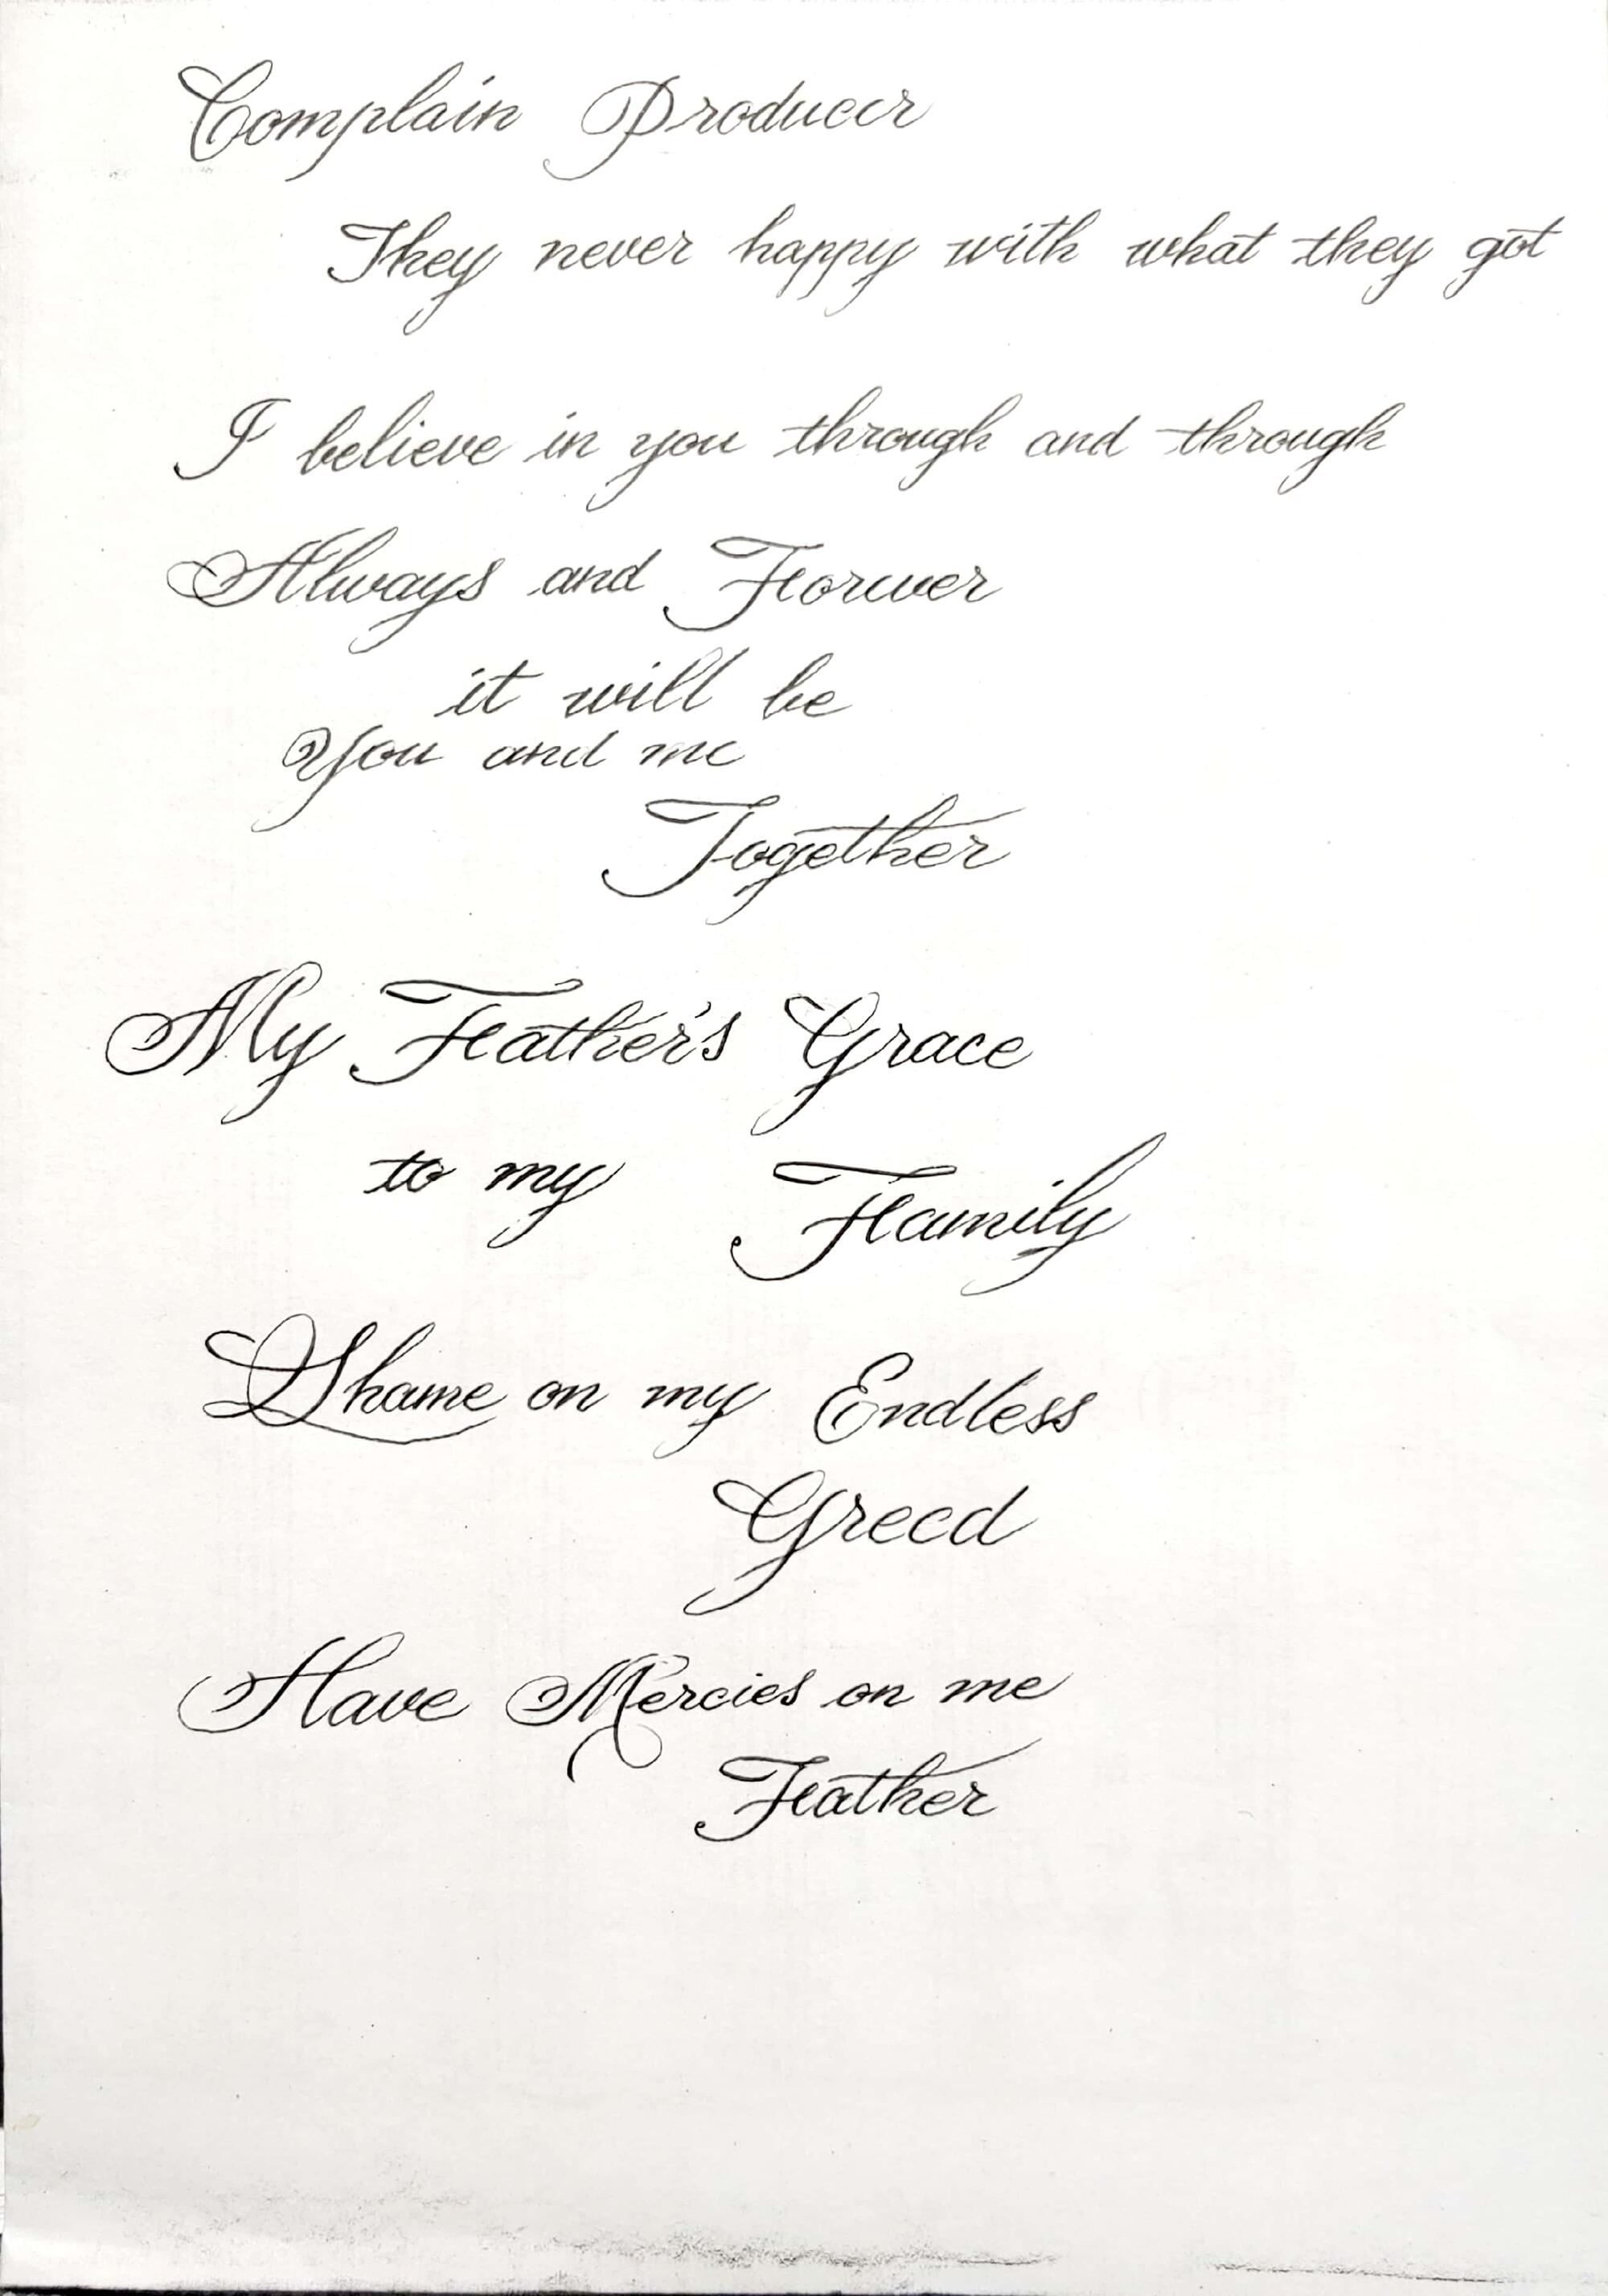 Complain Producer
They never happy with what they got
I believe in you through and through
Always and Forever
it will be
You and me
Together
My Father's Grace
to my Family
Shame on my Endless
Greed
Have Mercies on me
Father